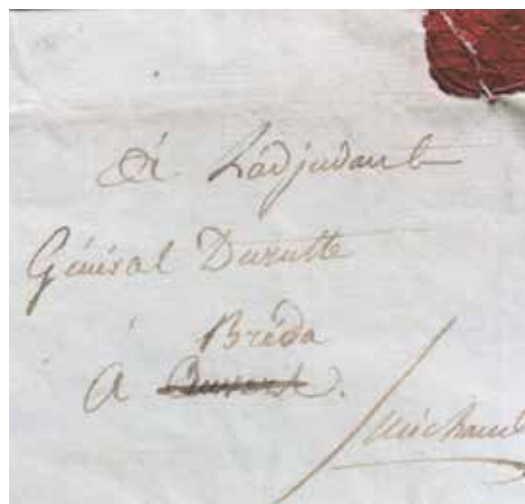 À Ladjudant
Général Durutte
Bréda
À Anvers.
Michaud